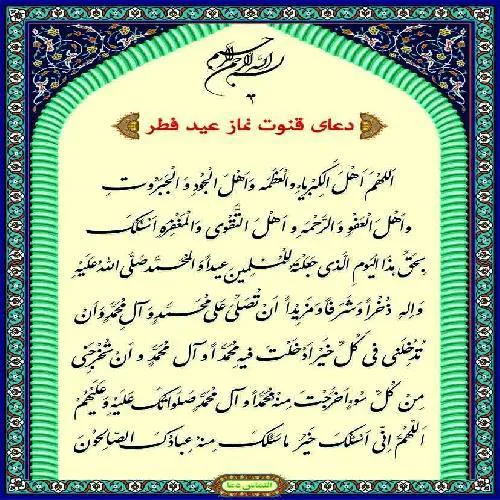 بسم الله الرحمن الرحیم
دعای قنوت نماز عید فطر
اَللّهُمَ اَهْلَ الْکِبْرِیاءِ وَالْعَظَمَه وَاَهْلَ الْجُودِ وَ الْجَبَرُوتِ
وَ اَهْلَ الْعَفْوِ وَ الرَّحْمَه وَ اَهْلَ التَّقْوی وَ الْمَغْفِرَه اَسْئَلُکَ
بِحَقِّ هذَا الْیَومِ الَّذی جَعَلْتَهُ لِلْمُسْلِمینَ عیداً وَ لِمُحَمَّدٍ صَلَّی اللهُ عَلَیْهِ
وَ الِهِ ذُخْراً وَ شَرَفاً وَ مَزیداً اَنْ تُصَلِّیَ عَلی مُحَمَّدٍ وَ آلِ مُحَمَّدٍ وَ اَنْ
تُدْخِلَنی فی کُلِّ خَیْرٍ اَدْخَلْتَ فیهِ مُحَمَّداً وَ آلَ مُحَمَّدٍ وَ اَنْ تُخْرِجَنی
مِنْ کُلِّ سُوءٍ اَخْرَجْتَ مِنْهُ مُحَمَّداً وَ آلَ مُحَمَّدٍ صَلَواتُکَ عَلَیْهِ وَ عَلَیْهِمْ
اَللّهُمَّ اِنّی اَسْئَلُکَ خَیْرَ ما سَئَلَکَ مِنْهُ عِبادُکَ الصّالِحُونَ
التماس دعا